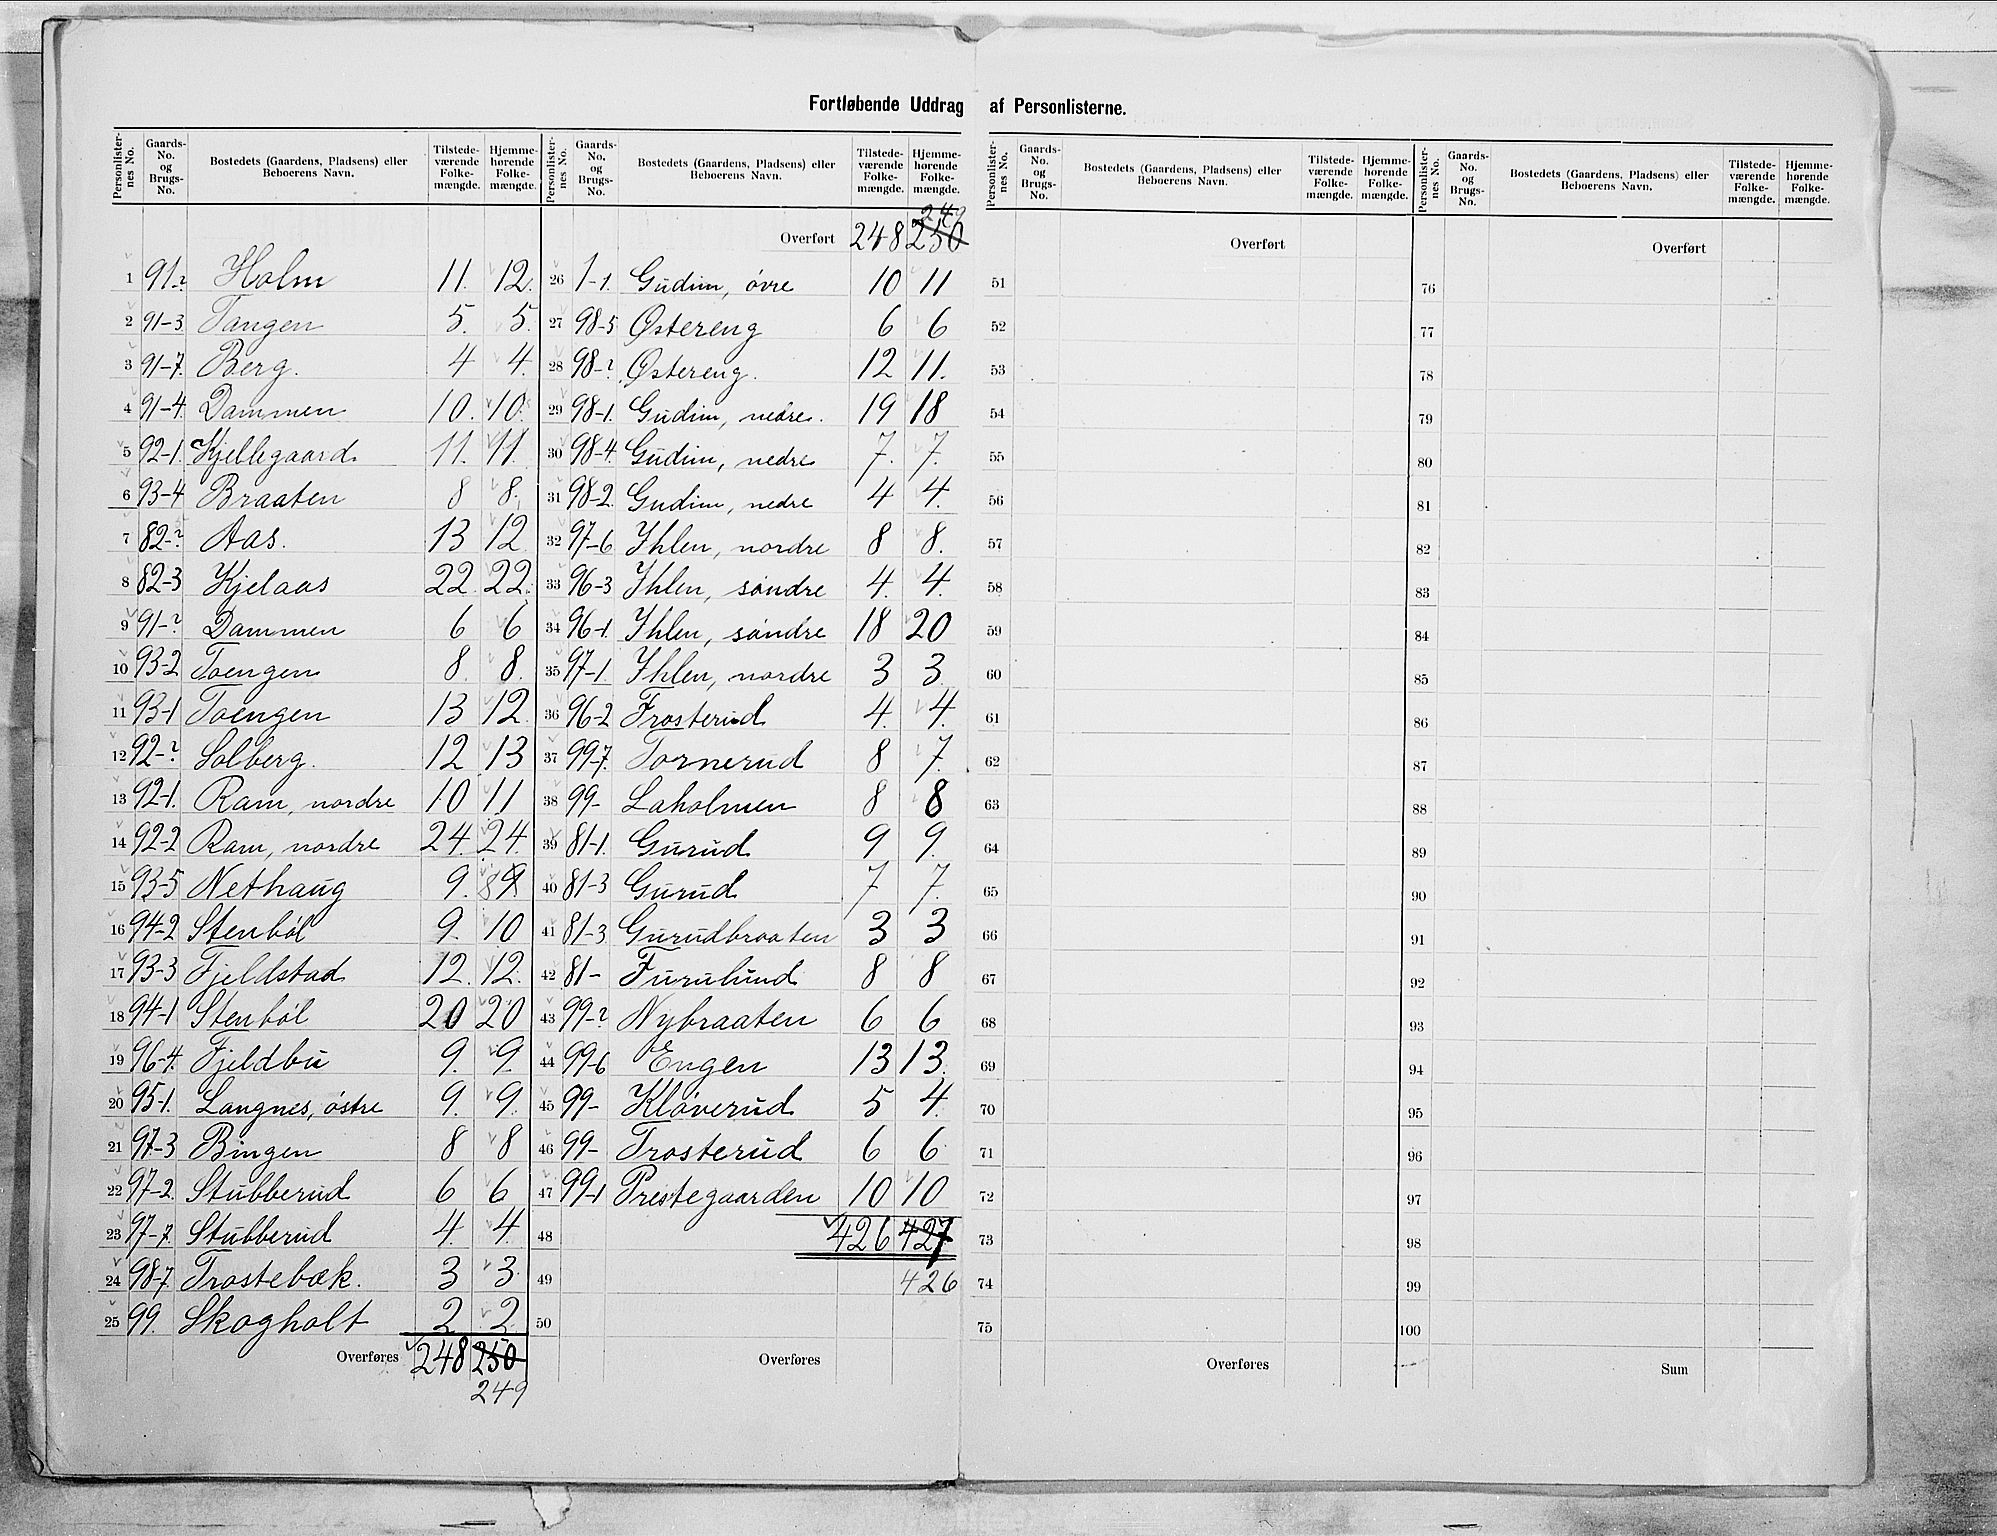 Fortløbende Uddrag af Personlisterne.
Personlister-nes No. Gaards-No. og Brugs-No. Bostedets (Gaardens, Pladsens) eller Beboerens Navn. Tilstede-værende Folke-mængde. Hjemme-hørende Folke-mængde.
1 91-? Holm 11. 12.
2 91-3 Tangen 5. 5.
3 91-7. Berg. 4 4.
4 91-4. Dammen 10. 10.
5 92-1. Kjellegaard 11. 11.
6 93-4 Braaten 8 8.
7 82-? Aas. 13 12
8 82-3 Kjelaas 22 22.
9 91-? Dammen 6 6
10 93-2 Toengen 8. 8.
11 93-1 Toengen 13 12
12 92-? Solberg. 12 13
13 92-1. Ram, nordre 10 11
14 92-2 Ram, nordre 24. 24.
15 93-5 Nethaug 9. 8 9.
16 94-2 Stenböl 9. 10
17 93-3 Fjeldstad 12. 12.
18 94-1 Stenböl 20 20
19 96-4. Fjeldbu 9. 9.
20 95-1. Langnes, östre 9. 9.
21 97-3 Bingen 8 8
22 97-2. Stubberud 6 6
23 97-7. Stubberud 4. 4.
24 98-7. Trostebæk. 3 3.
25 99. Skogholt 2 2
Overføres 248 250
249
Personlister-nes No. Gaards-No. og Brugs-No. Bostedets (Gaardens, Pladsens) eller Beboerens Navn. Tilstede-værende Folke-mængde. Hjemme-hørende Folke-mængde.
249
Overført 248 250
26 1-1. Gudim, övre 10 11
27 98-5 Østereng 6 6
28 98-? Østereng. 12 11.
29 98-1. Gudim, nedre. 19 18
30 98-4. Gudim, nedre 7. 7.
31 98-2. Gudim, nedre 4 4.
32 97-6 Ihlen, nordre 8 8.
33 96-3 Ihlen, söndre 4. 4.
34 96-1. Ihlen, söndre 18 20
35 97-1. Ihlen, nordre 3 3.
36 96-2 Frosterud 4. 4.
37 99-7. Tornerud 8 7.
38 99- Laholmen 8 8
39 81-1. Gurud 9 9.
40 81-3 Gurud 7 7.
41 81-3 Gurudbraaten 3 3
42 81- Furulund 8 8
43 99-? Nybraaten 6 6
44 99-6 Engen 13 13.
45 99- Klöverud 5 4.
46 99- Trosterud 6 6
47 99-1 Prestegaarden 10 10
48 426 427
49 426
50
Overføres
Personlister-nes No. Gaards-No. og Brugs-No. Bostedets (Gaardens, Pladsens) eller Beboerens Navn. Tilstede-værende Folke-mængde. Hjemme-hørende Folke-mængde.
Overført
51
52
53
54
55
56
57
58
59
60
61
62
63
64
65
66
67
68
69
70
71
72
73
74
75
Overføres
Personlister-nes No. Gaards-No. og Brugs-No. Bostedets (Gaardens, Pladsens) eller Beboerens Navn. Tilstede-værende Folke-mængde. Hjemme-hørende Folke-mængde.
Overført
76
77
78
79
80
81
82
83
84
85
86
87
88
89
90
91
92
93
94
95
96
97
98
99
100
Sum